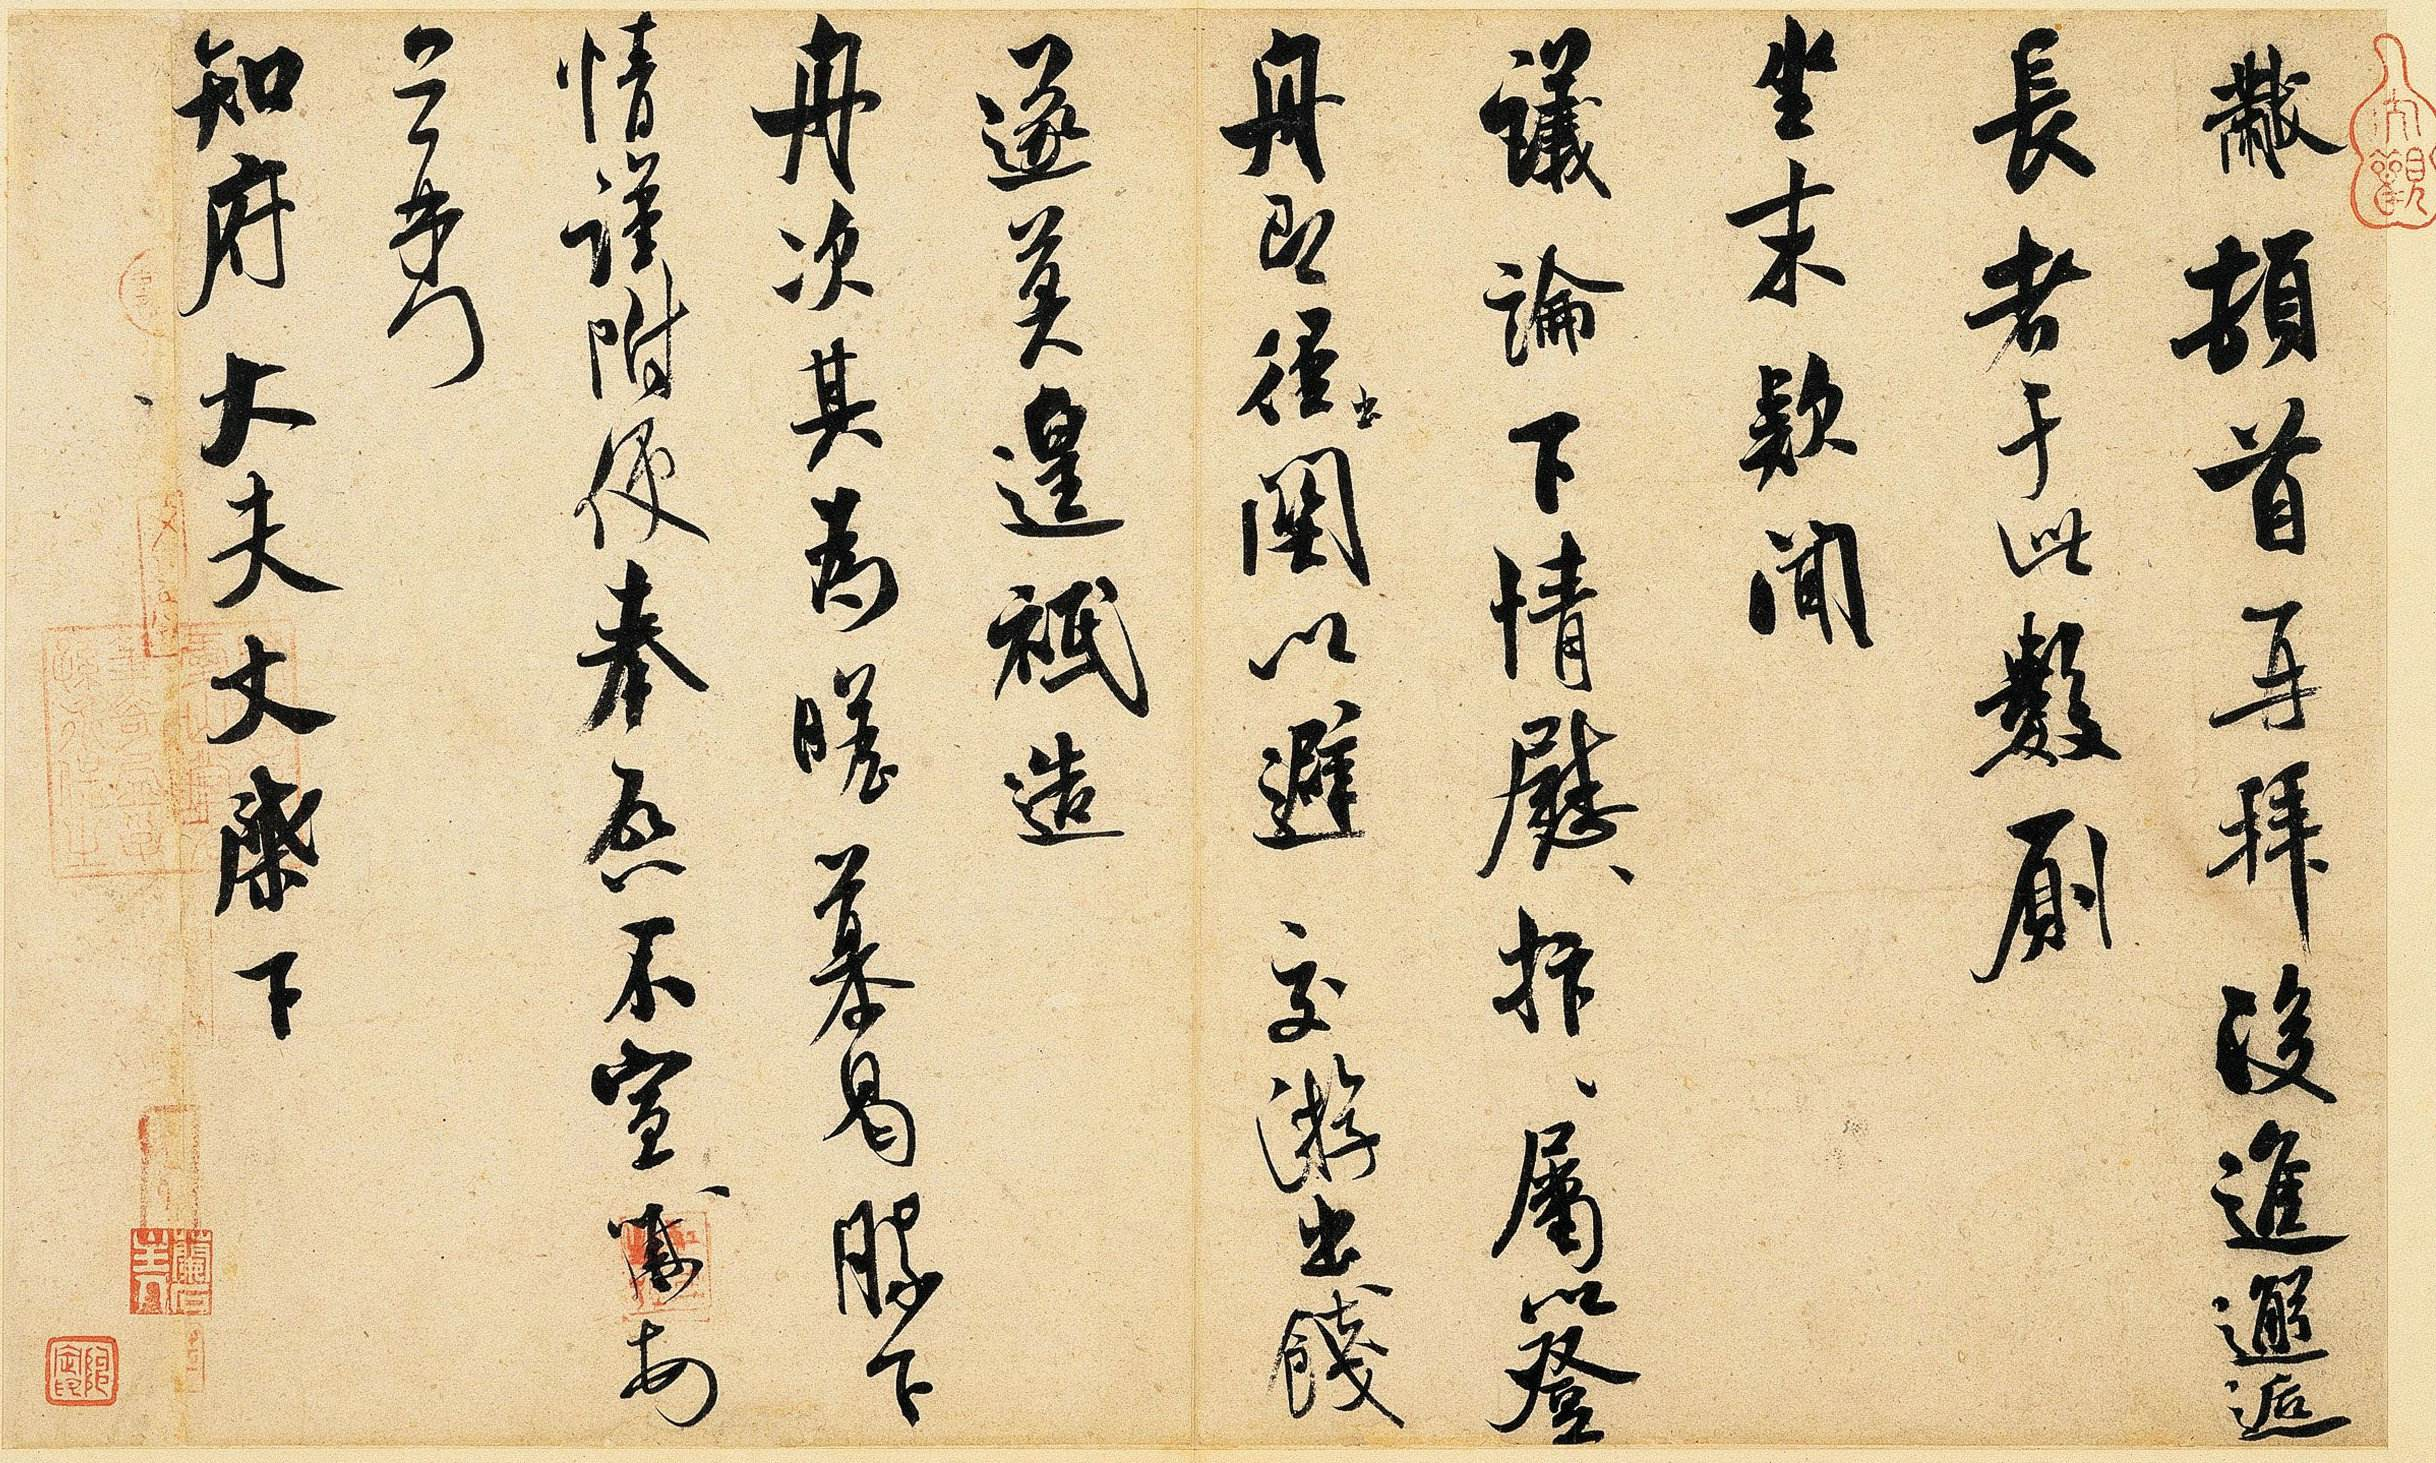 黻頓首再拜後進邂逅
長者于此數廁
坐末款聞
議論下情慰、抃、屬以登
舟即徑出關以避交游出餞
遂莫遑祗造
舟次其為瞻慕曷勝下
情謹附便奉啓不宣黻
知府大夫丈棨下